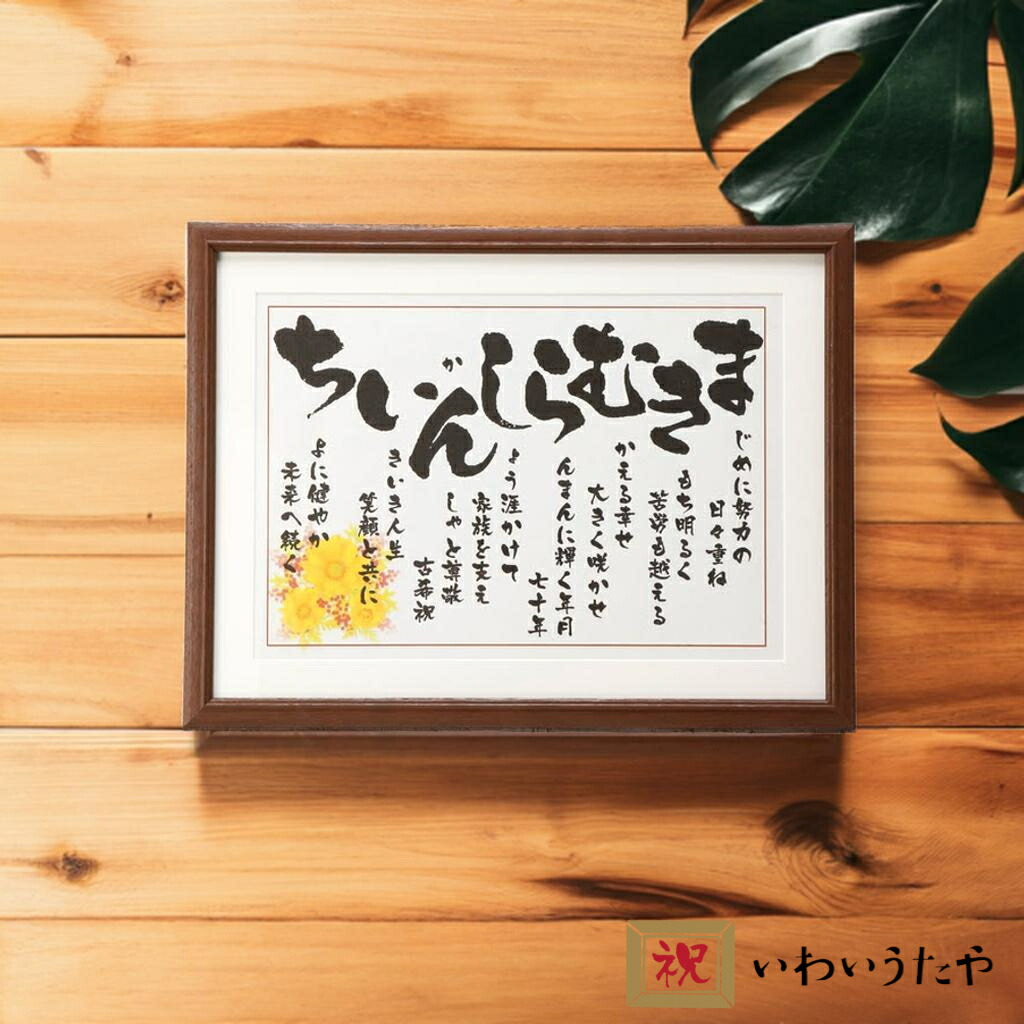 まきむらしんいち
か
じめに努力の
日々重ね
もち明るく
苦労も越える
かえる幸せ
大きく咲かせ
んまんに輝く年月
七十年
ょう涯かけて
家族を支え
しゃと尊敬
古希祝
きいき人生
笑顔と共に
よに健やか
未来へ続く
祝 いわいうたや